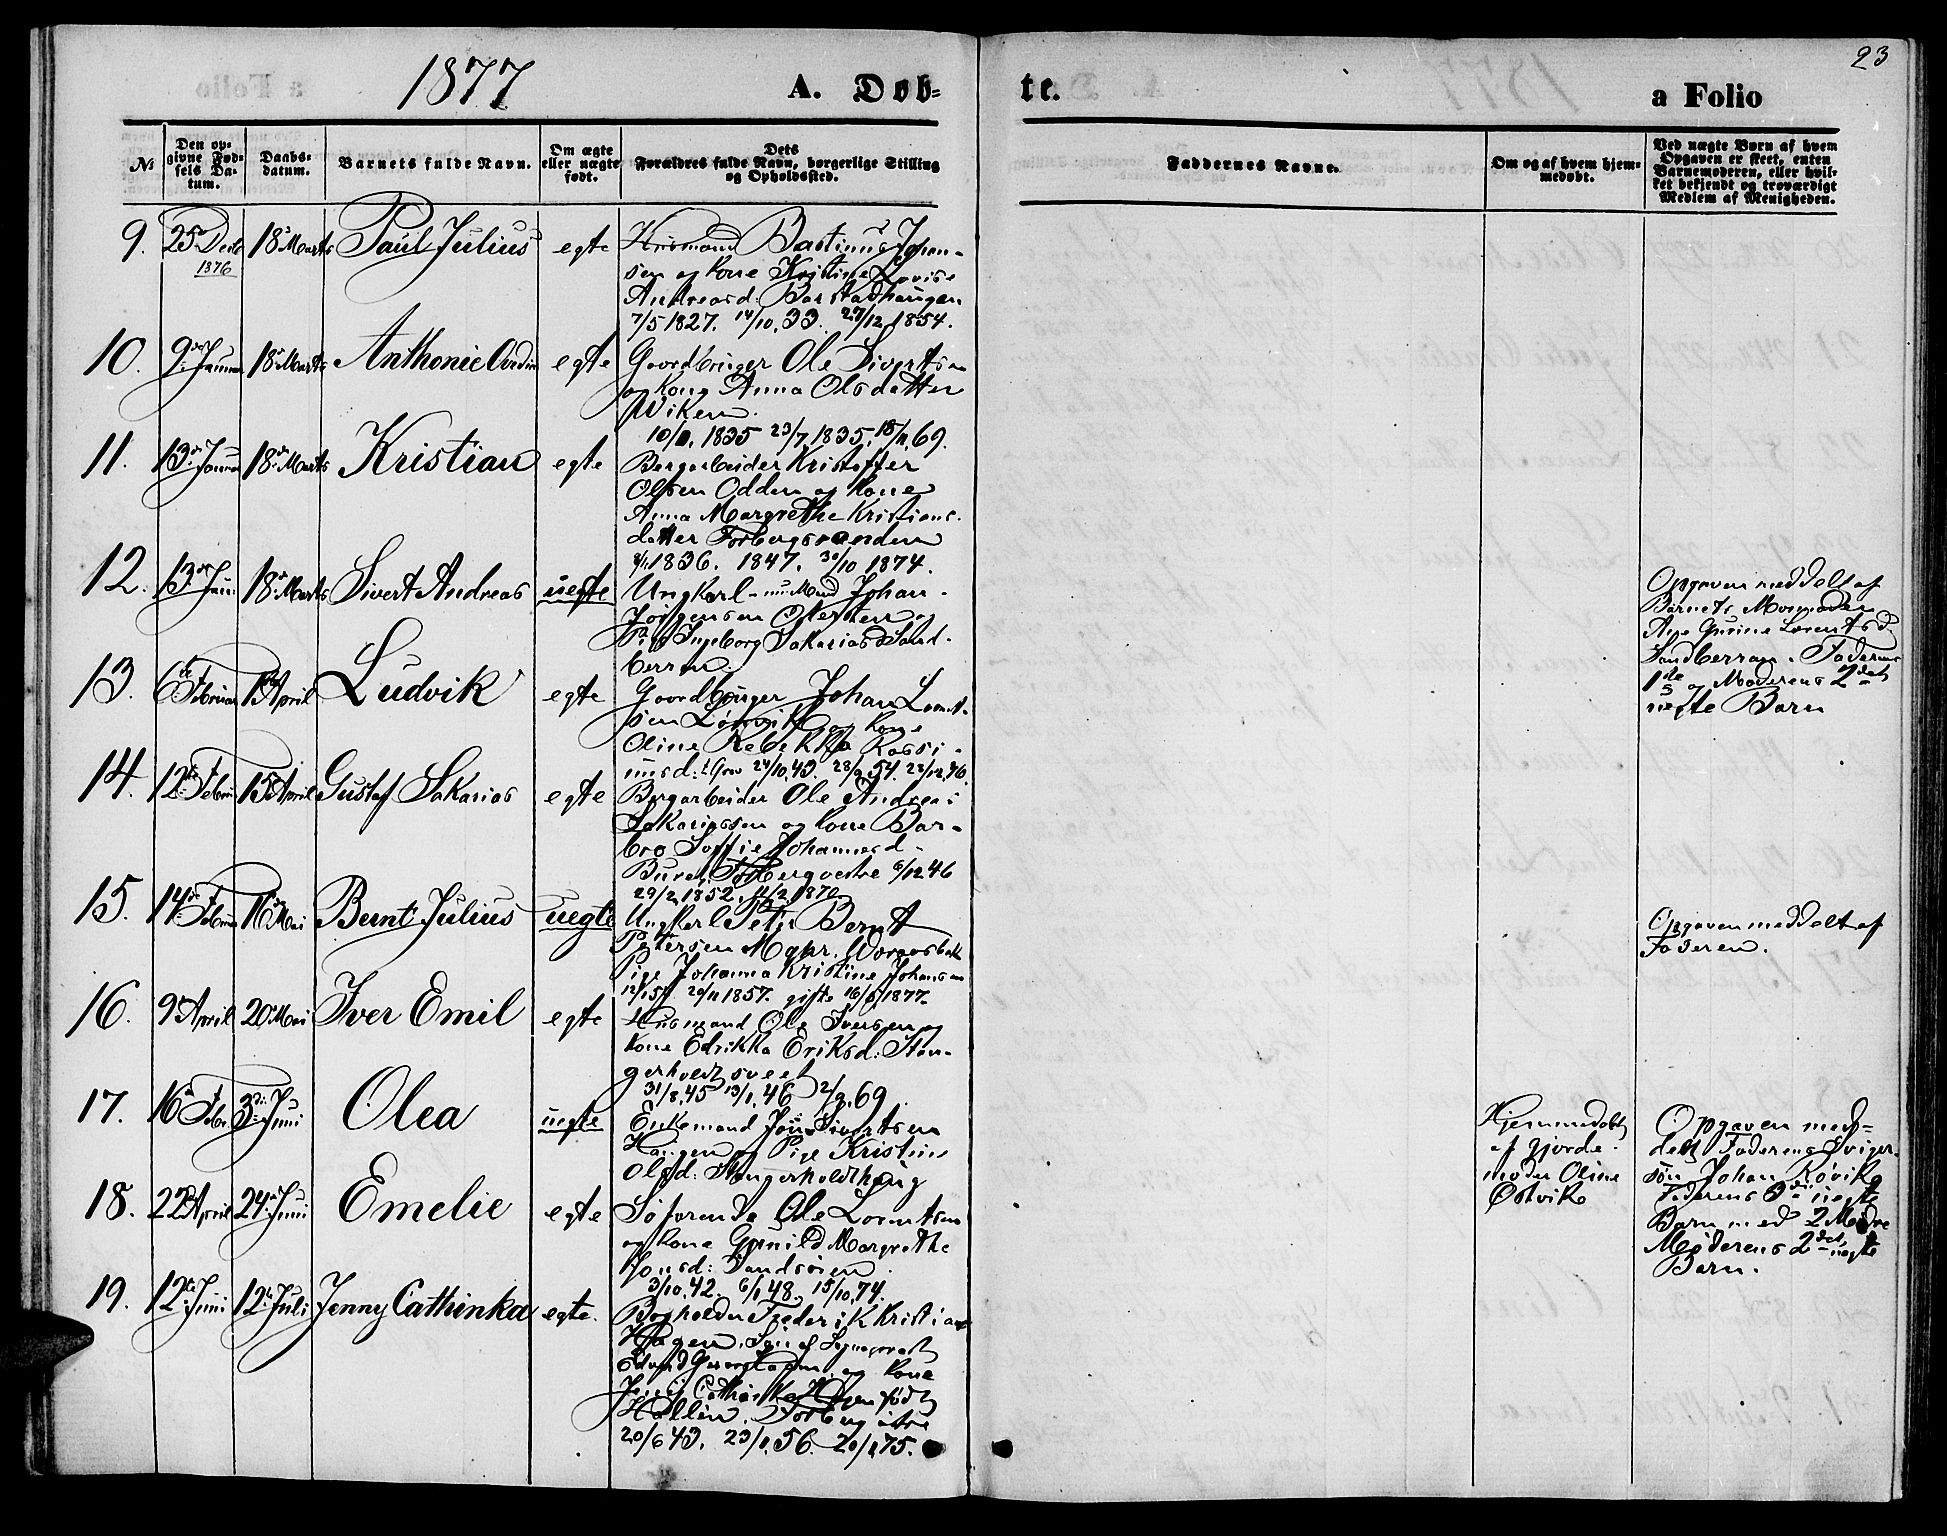 1877
A. Døb-
te.
a Folio
23
No
Den op-
givne Fød-
sels Da-
tum.
Daabs-
datum.
Barnets fulde Navn.
Om ægte
eller uægte
født.
Dets
Forældres fulde Navn, borgerlige Stilling
og Opholdssted.
Faddernes Navne.
Om og af hvem hjem-
medøbt.
Ved uægte Børn af hvem
Opgaven er skeet, enten
Barnemoderen, eller hvil-
ket bekjendt og troværdigt
Medlem af Menigheden.
9. 25 Decb 1876 18 Marts Paul Julius egte
Husmand Bastinus Johan-
sen og Kone Kristine Lovise
Andreasd: Barstadhaugen
7/5 1827. 14/10.33. 27/12 1854.
10. 9 Januar 18 Marts Anthonie egte
Gaardbruger Ole Sivertsen
og Kone Anna Olsdatter
Wiken.
1835 23/7 1835. 69.
11. 13 Januar 18 Marts Kristian egte
Bergarbeider Kristoffer
Olsen Odden og Kone
Anna Margrethe Kristians-
datter
1836. 1847. 30/10 1874.
12. 13 Jan: 18 Marts Sivert Andreas uegte
Ungkarl - Johan
Jørgensen og
Pige Ingeborg Sakariasd Sand-
berren.
Opgaven meddelt af
Barnets Mormoder
Ane Gurine Lorentsd
Sandberren. Faderens
1ste og Moderens 2det
uegte Barn
13. 6te Februar 15 April Ludvik egte
Gaardbruger Johan Lornt-
sen og Kone
Oline Rebekka Rassi-
nusd: 24/10.43. 28/9.54. 28/12.76.
14. 12te Februar 15 April Gustaf Sakarias egte
Bergarbeider Ole Andreas
Sakariassen og Kone Bar-
bro Soffie Johannesd
6/12 46
29/2 1852. 1870
15. 14 Februar Mai Bernt Julius uegte
Ungkarl Peter Bernt
Petersen
Pige Johanna Kristine Johansen
20/11 1857. gifte 1877.
Opgaven meddelt af
Faderen.
16. 9 April 20 Mai Iver Emil egte
Husmand Ole Iversen og
Kone Edrikka Eriksd: Stan-
gerholdtsveet
31/8.45 13/1.46 2/9.69
17. 16 Febr. 3die Juni Olea uegte
Enkemand Jon Sivertsen
Haugen og Pige Kristine
Olsd: Stangerholdthaug
Hjemmedøbt
af Gjorde-
moder Oline
Østvik
Opgaven med-
delt Faderens Sviger-
søn Johan Røvik
Faderens 3die uegte
Barn med 2 Mødre
Moderens 2det uegte
Barn.
18. 22 April 24 Juni Emelie egte
Søfarende Ole Lorntsen
og Kone Gunild Margrethe
Jonsd: Sandsøien
3/10.42. 6/1.48. 15/10.74.
19. 12te Juni 12te Juli Jenny Cathinka egte.
Bogholder Frederik Kristian
Hagen, Søn af Sogneprest
Edvard Georg Hagen og Kone
Jenny Cathinka Hagen født
Hallin. Forberg østre
20/6 43. 23/1.56. 75.